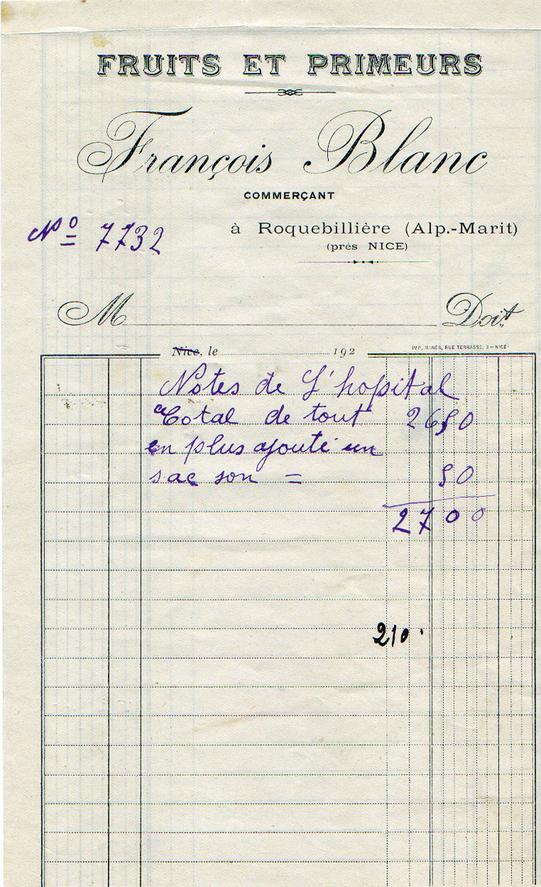 FRUITS ET PRIMEURS
François Blanc
COMMERÇANT
à Roquebillière (Alp.-Marit)
(près NICE)
Nº 7732
M Doit
Nice, le 192
IMP. MINÈS, RUE TERRASSE, 3 - NICE
Notes de L'hopital
Total de tout 2650
en plus ajouté un
sac son = 50
2700
210.